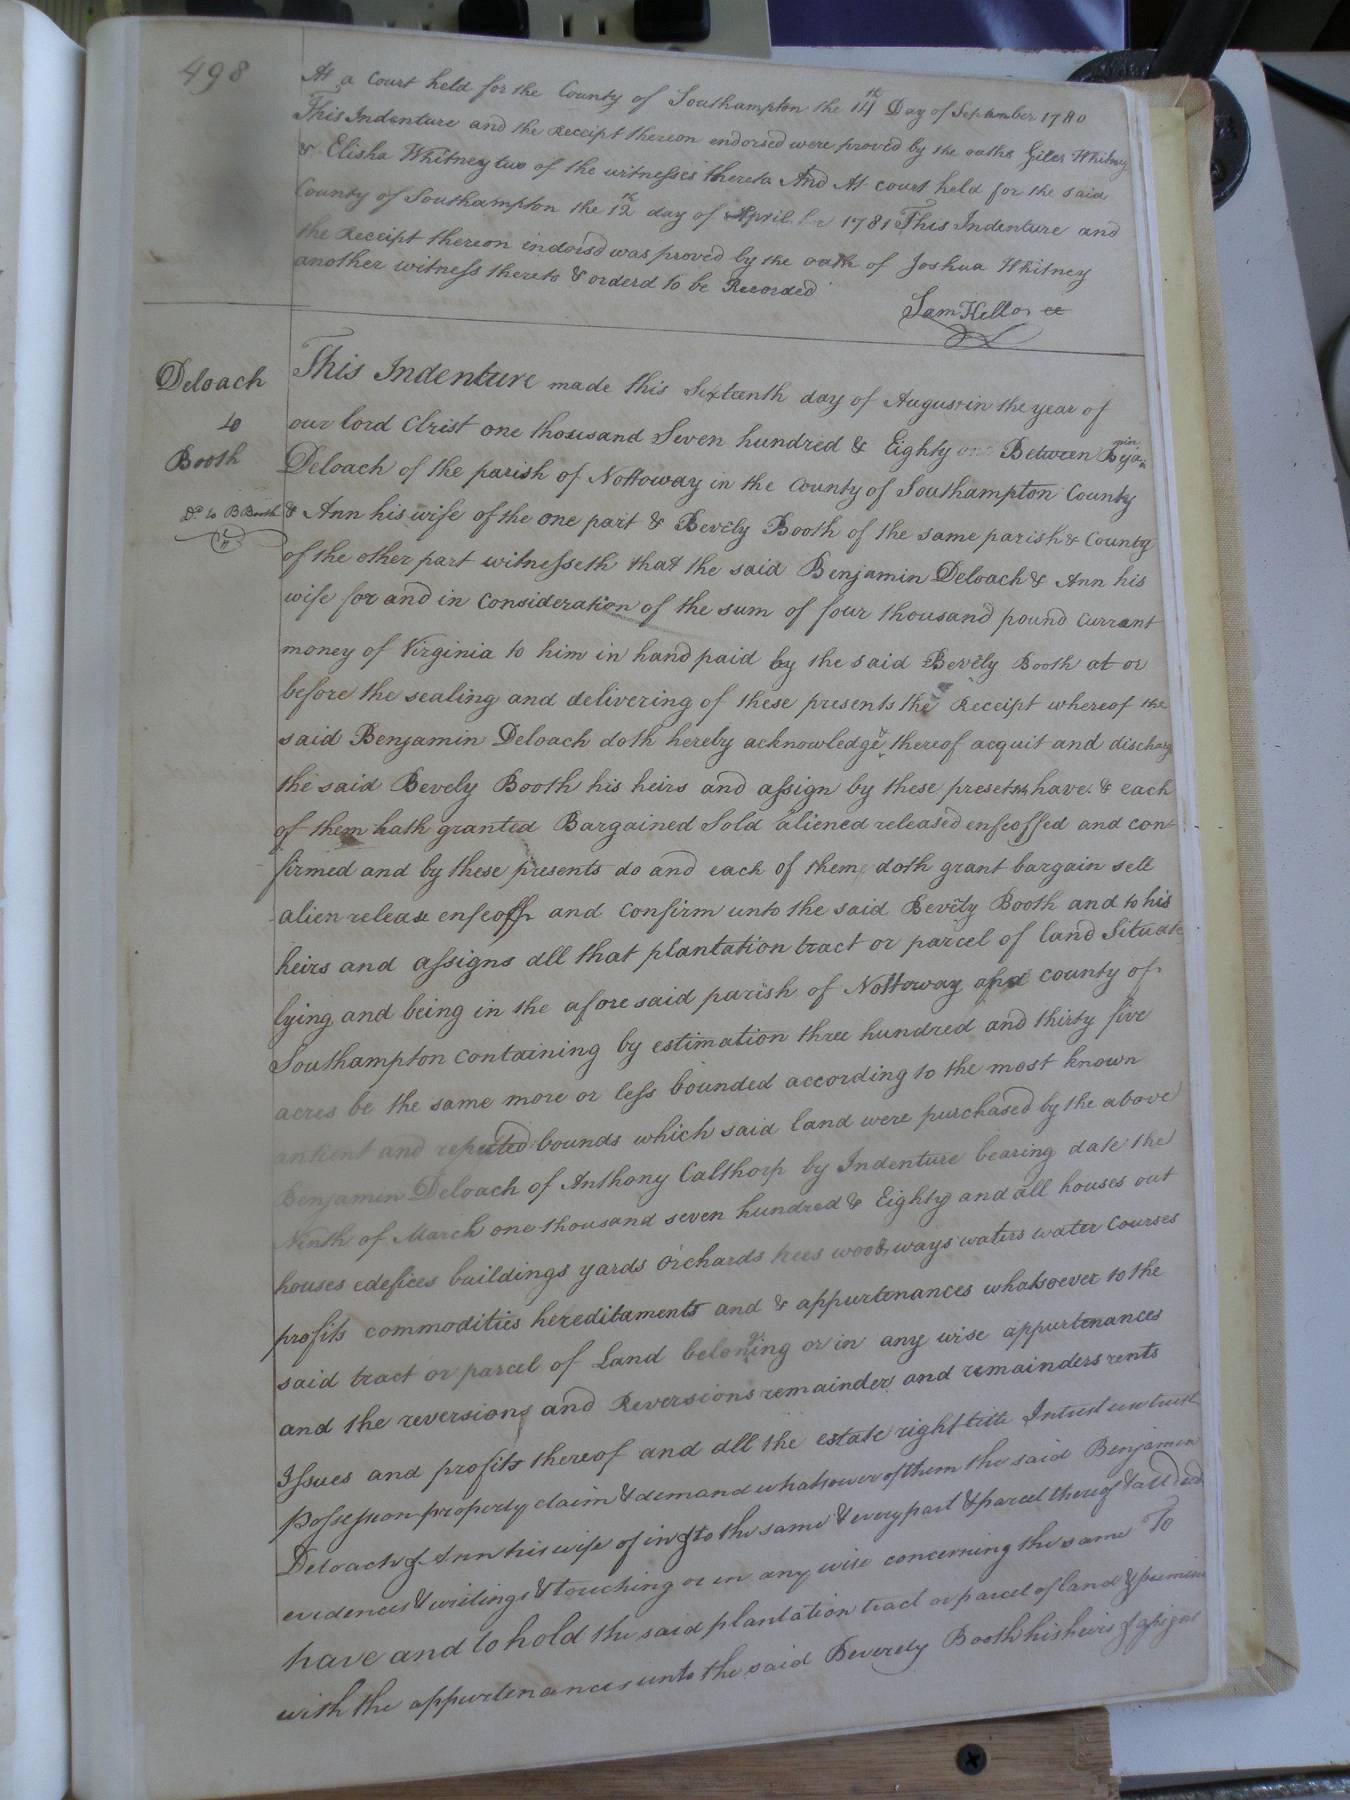 498
At a Court held for the County of Southampton the 14th Day of September 1780
This Indenture and the Receipt thereon endorsed were proved by the oaths Giles Whitney
& Elisha Whitney two of the witnesses thereto And At court held for the said
County of Southampton the 12th day of April 1781 This Indenture and
the Receipt thereon indorsd was proved by the oath of Joshua Whitney
another witness thereto & orderd to be Recorded
Sam Kello cc
Deloach
to
Booth
Do to B Booth
This Indenture made this Sixteenth day of August in the year of
our lord Christ one thousand Seven hundred & Eighty one Between Benjamin
Deloach of the parish of Nottoway in the County of Southampton County
& Ann his wife of the one part & Bevely Booth of the same parish & County
of the other part witnesseth that the said Benjamin Deloach & Ann his
wife for and in Consideration of the sum of four thousand pound Currant
money of Virginia to him in hand paid by the said Bevely Booth at or
before the sealing and delivering of these presents the Receipt whereof the
said Benjamin Deloach doth hereby acknowledge thereof acquit and discharg
the said Bevely Booth his heirs and assign by these presets have & each
of them hath granted Bargained Sold aliened released enfeoffed and con
firmed and by these presents do and each of them doth grant bargain sell
alien release enfeoff and Confirm unto the said Bevely Booth and to his
heirs and assigns all that plantation tract or parcel of land Situate
lying and being in the afore said parish of Nottoway and county of
Southampton containing by estimation three hundred and thirty five
acres be the same more or less bounded according to the most known
antient and reputed bounds which said land were purchased by the above
Benjamin Deloach of Anthony Calthorp by Indenture bearing date the
Ninth of March one thousand seven hundred & Eighty and all houses out
houses edefices buildings yards orchards trees woods ways waters water Courses
profits commodities hereditaments and & appurtenances whatsoever to the
said tract or parcel of Land belonging or in any wise appurtenances
and the reversions and Reversions remainder and remainders rents
Issues and profits thereof and all the estate right title Intrust
possession property claim & demand whatsoever of them the said Benjamin
Deloach & Ann his wife of in & to the same & every part & parcel thereof & all deed
evidences & writings & touching or in any wise concerning the same To
have and to hold the said plantation tract or parcel of land & premises
with the appurtenances unto the said Beverely Booth his heirs & assigns